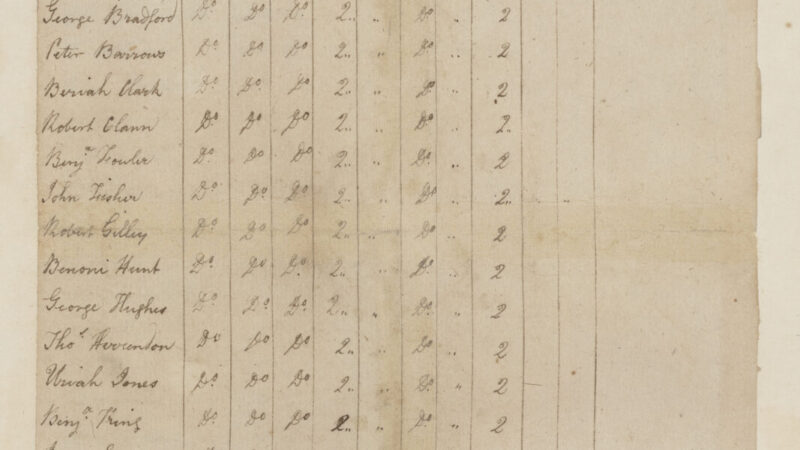 George Bradford Do Do Do 2 " Do " 2
Peter Barrows Do Do Do 2 " Do " 2
Beriah Clark Do Do Do 2 " Do " 2
Robert Clann Do Do Do 2 " Do " 2
Benja Fowler Do Do Do 2 " Do " 2
John Fisher Do Do Do 2 " Do " 2 " "
Robert Gilley Do Do Do 2 " " Do " 2
Benoni Hunt Do Do Do 2 " Do " 2
George Hughes Do Do Do 2 " Do " 2
Thos Herrendon Do Do Do 2 " Do " 2
Uriah Jones Do Do Do 2 " Do " 2
Benja King Do Do Do 2 " Do " 2